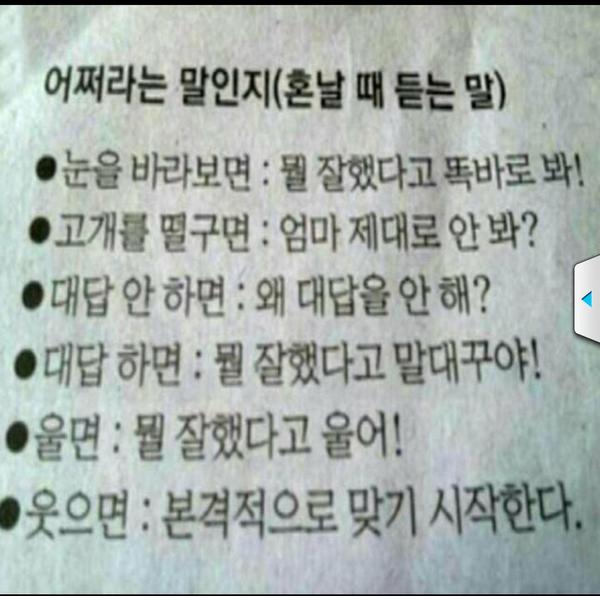 어쩌라는 말인지(혼날 때 듣는 말)
●눈을 바라보면 : 뭘 잘했다고 똑바로 봐!
●고개를 떨구면 : 엄마 제대로 안 봐?
●대답 안 하면 : 왜 대답을 안 해?
●대답 하면 : 뭘 잘했다고 말대꾸야!
●울면 : 뭘 잘했다고 울어!
●웃으면 : 본격적으로 맞기 시작한다.